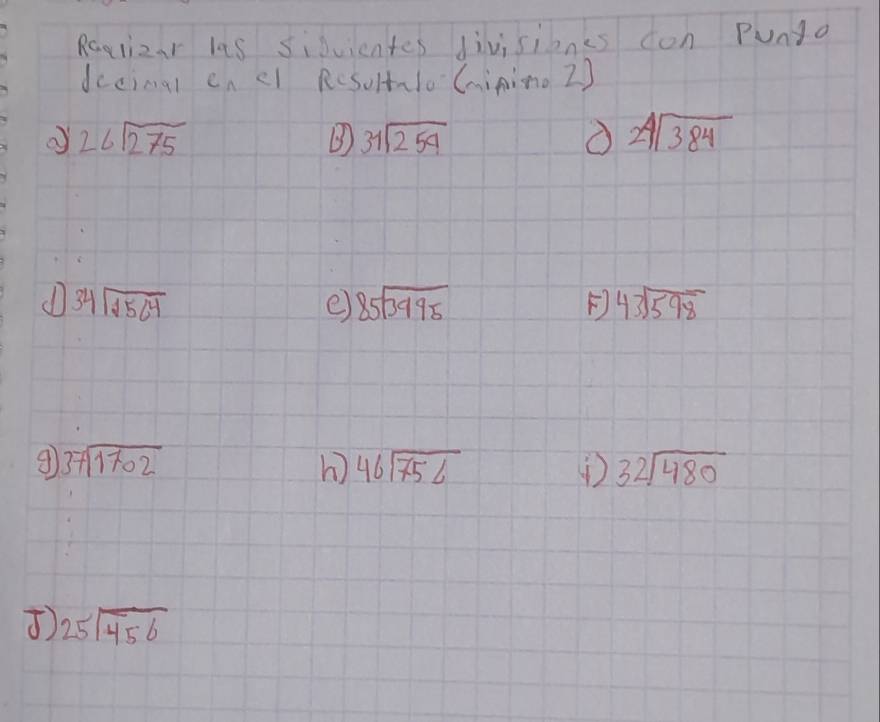 Realizar las siguientes divisiones con Punto
decimal en el Resultado (minimo 2)
a) 26√275 B) 31√259 c) 24√384
d) 34√1564 e) 85√3995 F) 43√598
g) 37√1702 h) 46√756 i) 32√480
J) 25√456